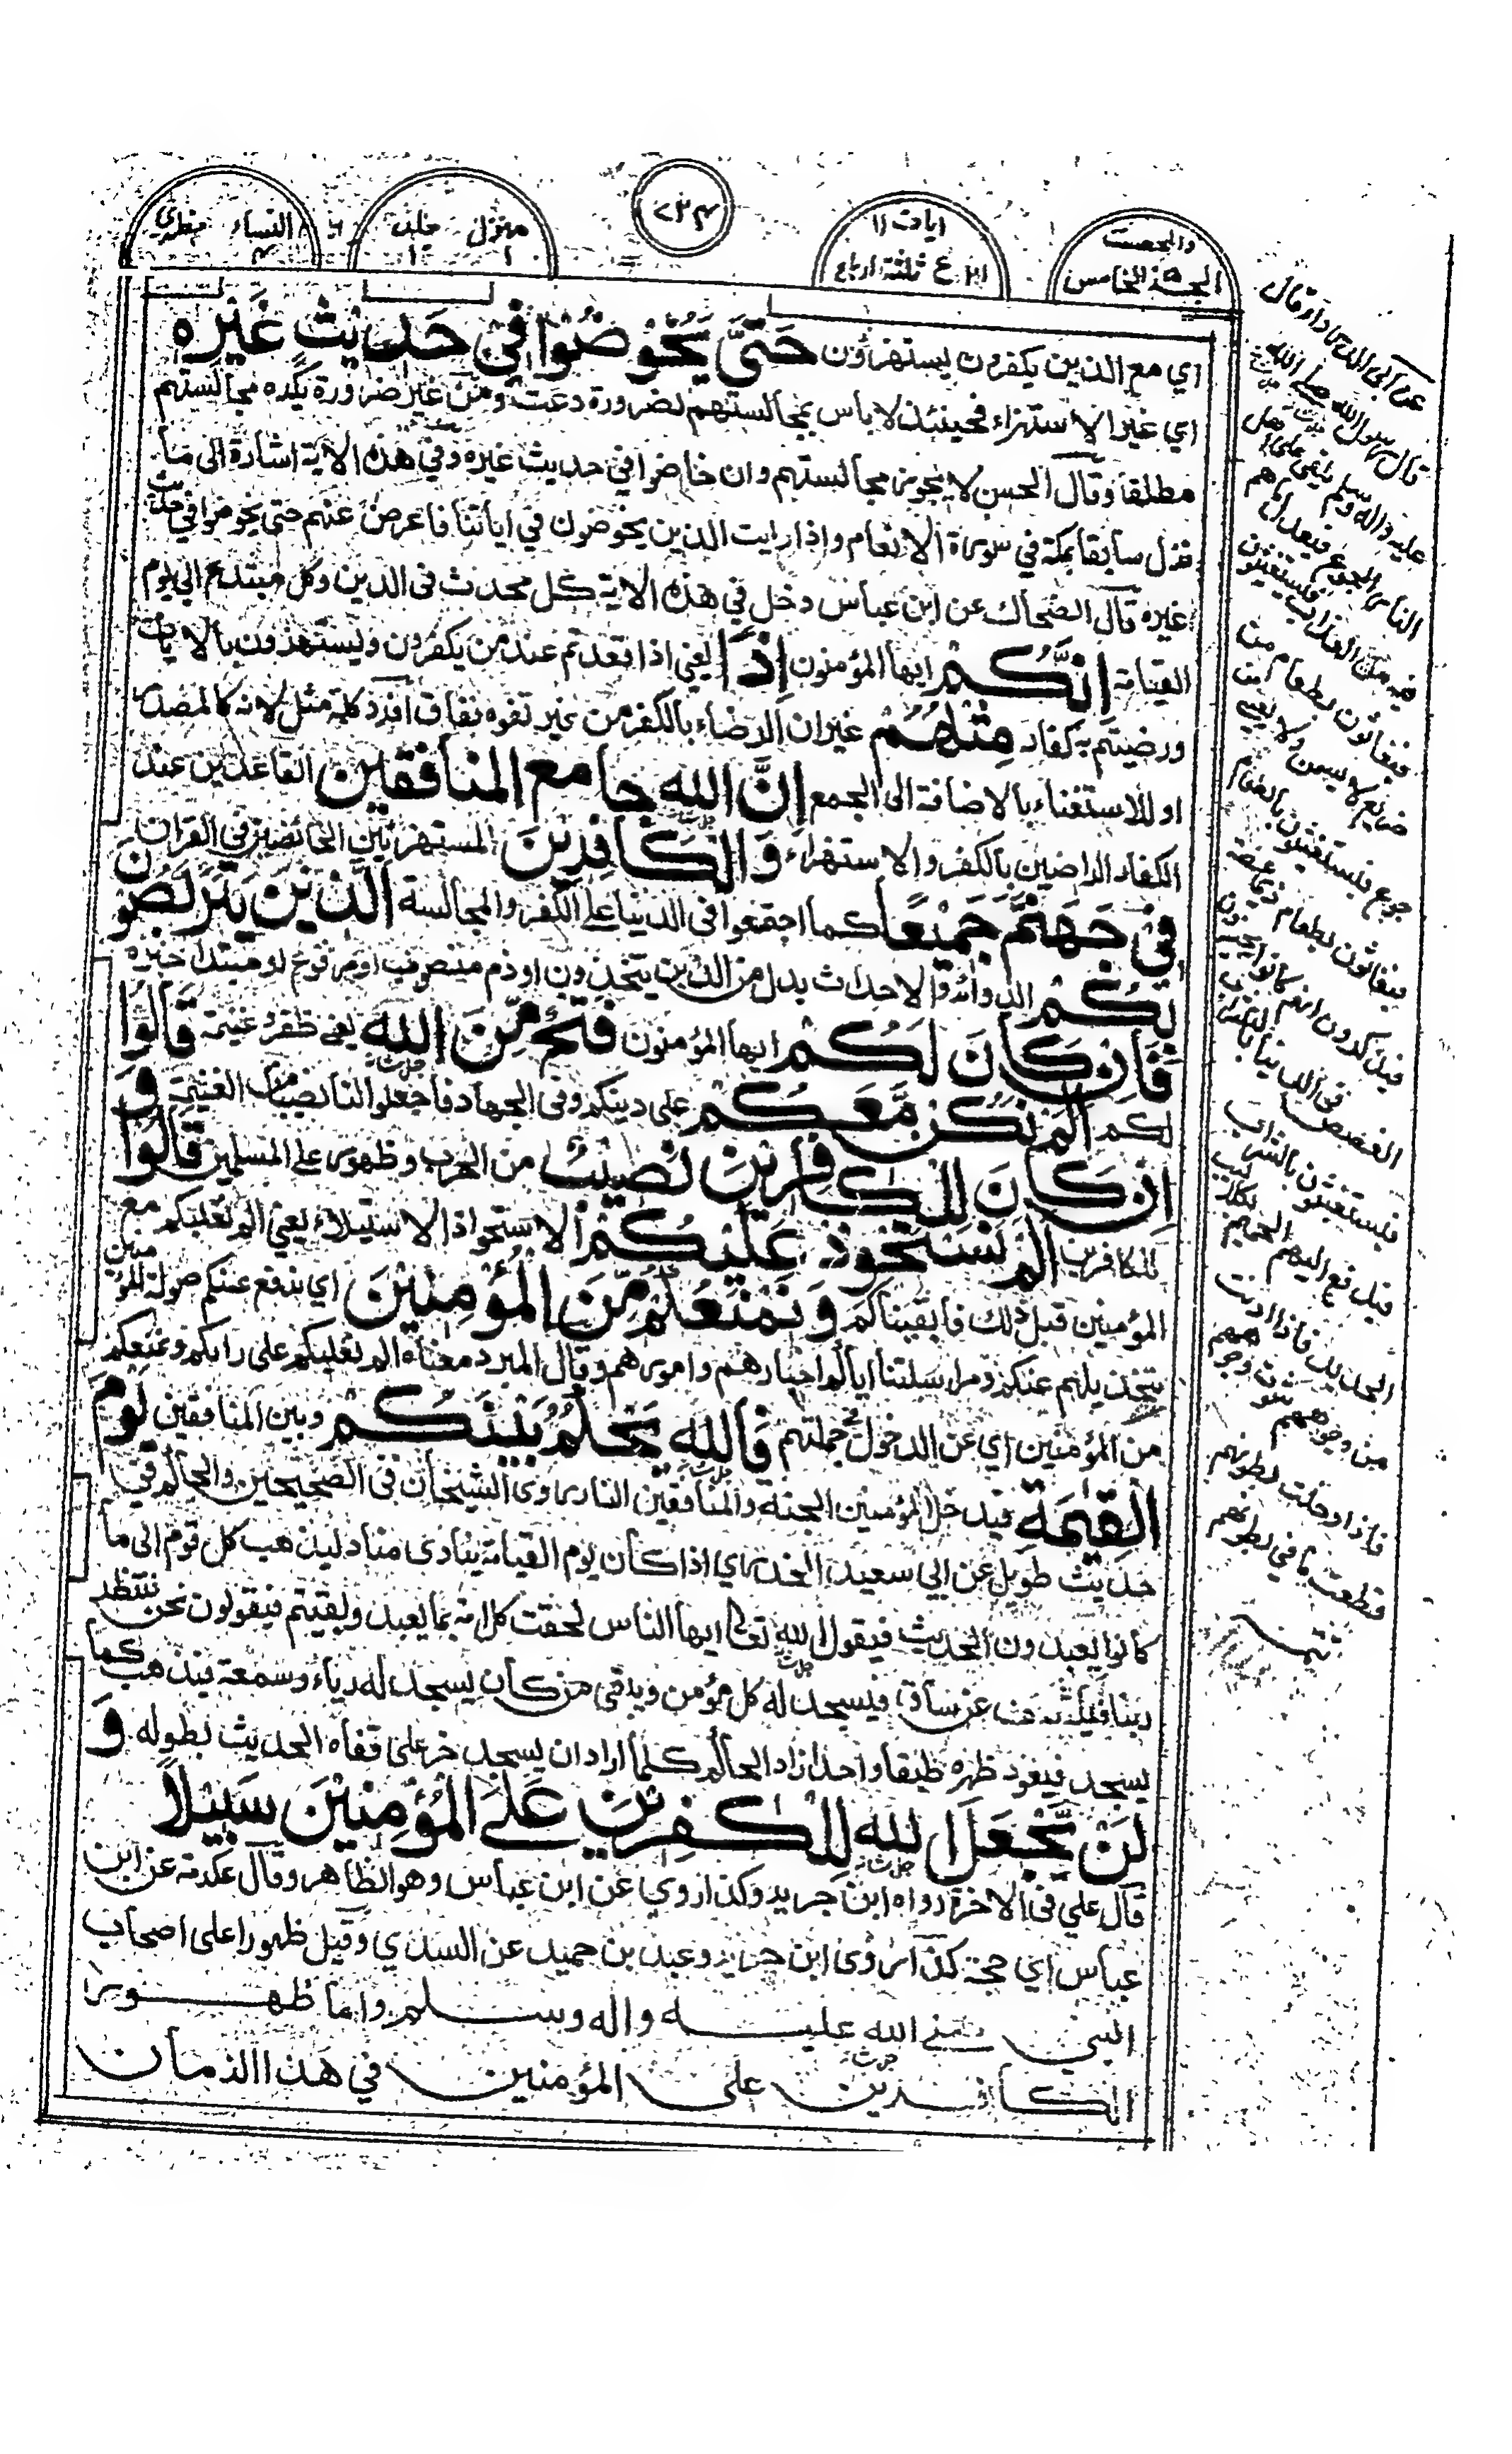 والمحصنت
الجزء الخامس
ايات ١١
ثلثة ارباع
منزل ١
جلد
النساء ٤
مظهري
اي مع الذين يكفرون يستهزءون حَتّٰى يَخُوْضُوْا فِيْ حَدِيْثٍ غَيْرِهٖ
اي غير الاستهزاء فحينئذ لا باس بمجالستهم لضرورة دعت ومن غير ضرورة يكره مجالستهم
مطلقا وقال الحسن لا يجوز مجالستهم وان خاضوا في حديث غيره وفي هذه الاية اشارة الى ما
نزل سابقا بمكة في سورة الانعام واذا رايت الذين يخوضون في اياتنا فاعرض عنهم حتى يخوضوا في حديث
غيره قال الضحاك عن ابن عباس دخل في هذه الاية كل محدث في الدين وكل مبتدع الى يوم
القيامة اِنَّكُمْ ايها المؤمنون اِذًا يعني اذا قعدتم عند من يكفرون ويستهزءون بالايات
ورضيتم به كفار مِثْلُهُمْ غير ان الرضاء بالكفر من غير تفوه نفاق افرد كلمة مثل لانه كالمصدر
او للاستغناء بالاضافة الى الجمع اِنَّ اللهَ جَامِعُ الْمُنَافِقِيْنَ القاعدين عند
الكفار الراضين بالكفر والاستهزاء وَالْكَافِرِيْنَ المستهزئين الخائضين في القران
فِيْ جَهَنَّمَ جَمِيْعًا كما اجتمعوا في الدنيا على الكفر والمجالسة الَّذِيْنَ يَتَرَبَّصُوْنَ
بِكُمْ الدوائر والاحداث بدل من الذين يتخذون او ذم منصوب او مرفوع او مبتدا خبره
فَاِنْ كَانَ لَكُمْ ايها المؤمنون فَتْحٌ مِّنَ اللهِ يعني ظفر وغنيمة قَالُوْا
لكم اَلَمْ نَكُنْ مَّعَكُمْ على دينكم وفي الجهاد فاجعلوا لنا نصيبا من الغنيمة وَ
اِنْ كَانَ لِلْكَافِرِيْنَ نَصِيْبٌ من الحرب وظهور على المسلمين قَالُوْا
للكافرين اَلَمْ نَسْتَحْوِذْ عَلَيْكُمْ الاستحواذ الاستيلاء يعني الم نغلبكم مع
المؤمنين قبل ذلك فابقيناكم وَنَمْنَعْكُمْ مِّنَ الْمُؤْمِنِيْنَ اي ندفع عنكم صولة المؤمنين
بتخذيلهم عنكم ومراسلتنا اياكم اخبارهم وامورهم وقال المبرد معناه الم نغلبكم على رايكم ونمنعكم
من المؤمنين اي عن الدخول في جملتهم فَاللهُ يَحْكُمُ بَيْنَكُمْ وبين المنافقين يَوْمَ
الْقِيٰمَةِ فيدخل المؤمنين الجنة والمنافقين النار روى الشيخان في الصحيحين والحاكم في
حديث طويل عن ابي سعيد الخدري اذا كان يوم القيامة ينادى مناد ليذهب كل قوم الى ما
كانوا يعبدون الحديث فيقول الله تعالى ايها الناس لحقت كل امة بما يعبد وبقيتم فيقولون نحن ننتظر
ربنا عن ساق فيسجد له كل مؤمن ويبقى من كان يسجد له رياء وسمعة فيذهب كيما
يسجد فيعود ظهره طبقا واحدا زاد الحاكم كلما اراد ان يسجد خر على قفاه الحديث بطوله وَ
لَنْ يَّجْعَلَ اللهُ لِلْكٰفِرِيْنَ عَلَى الْمُؤْمِنِيْنَ سَبِيْلًا
قال علي في الاخرة رواه ابن جرير وكذا روي عن ابن عباس وهو الظاهر وقال عكرمة عن ابن
عباس اي حجة كذا روى ابن جرير وعبد بن حميد عن السدي وقيل ظهورا على اصحاب
النبي صلى الله عليه واله وسلم واما ظهور
الكافرين على المؤمنين في هذا الزمان
عن ابي الدرداء قال
قال رسول الله صلى الله
عليه واله وسلم يلقى على اهل
النار الجوع فيعدل ما هم
فيه من العذاب فيستغيثون
فيغاثون بطعام من
ضريع لا يسمن ولا يغني من
جوع فيستغيثون بالطعام
فيغاثون بطعام ذي غصة
فيذكرون انهم كانوا يجيزون
الغصص في الدنيا بالشراب
فيستغيثون بالشراب
فيرفع اليهم الحميم بكلاليب
الحديد فاذا ادنت
من وجوههم شوت وجوههم
فاذا دخلت بطونهم
قطعت ما في بطونهم